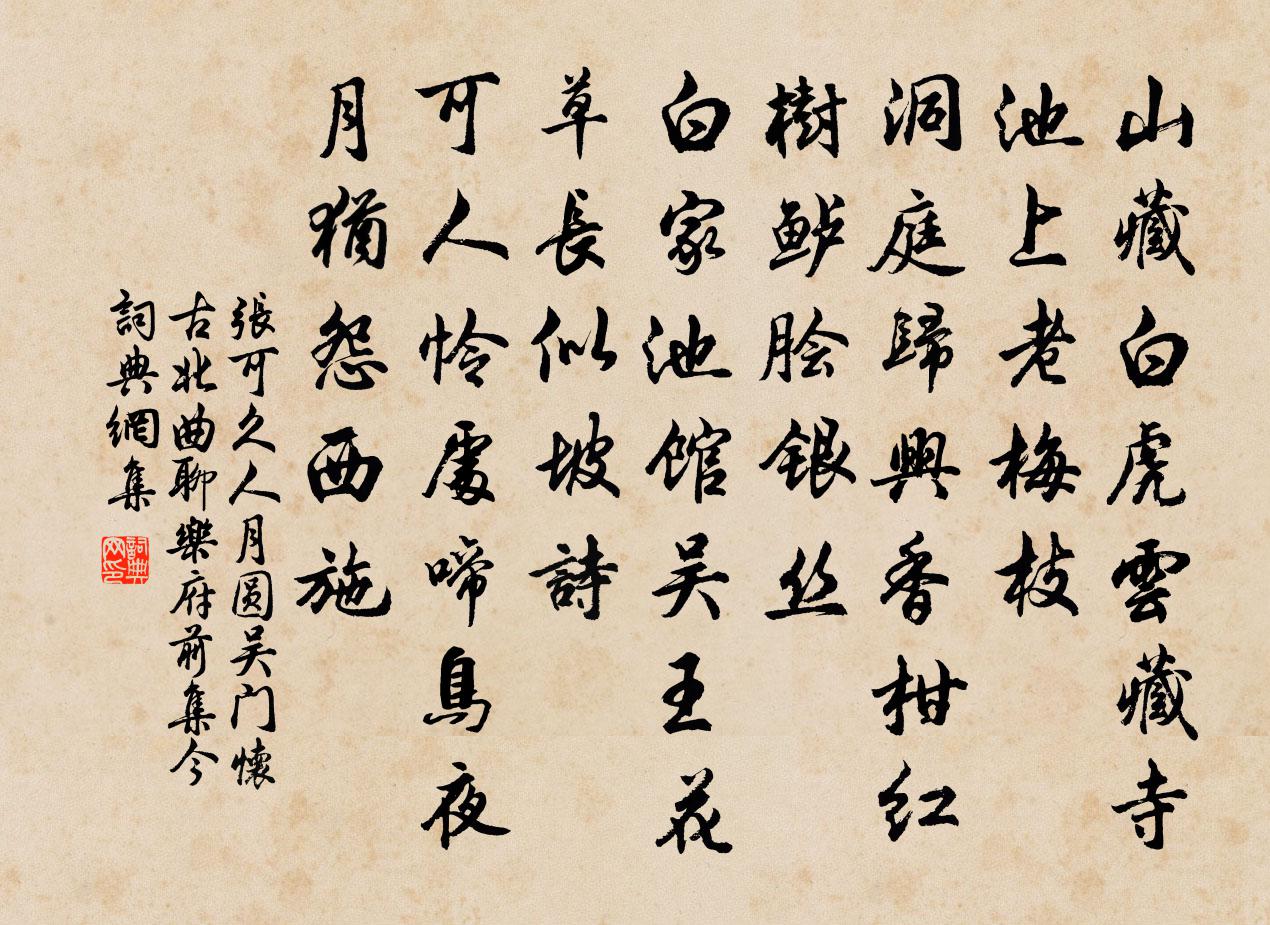 山藏白虎雲藏寺
池上老梅枝
洞庭歸興香柑红
樹鲈脍银丝
白家池馆吴王花
草長似坡詩
可人怜處啼鳥夜
月猶怨西施
張可久人月圆吴门懷
古北曲聊樂府前集今
詞典網集
詞典网印